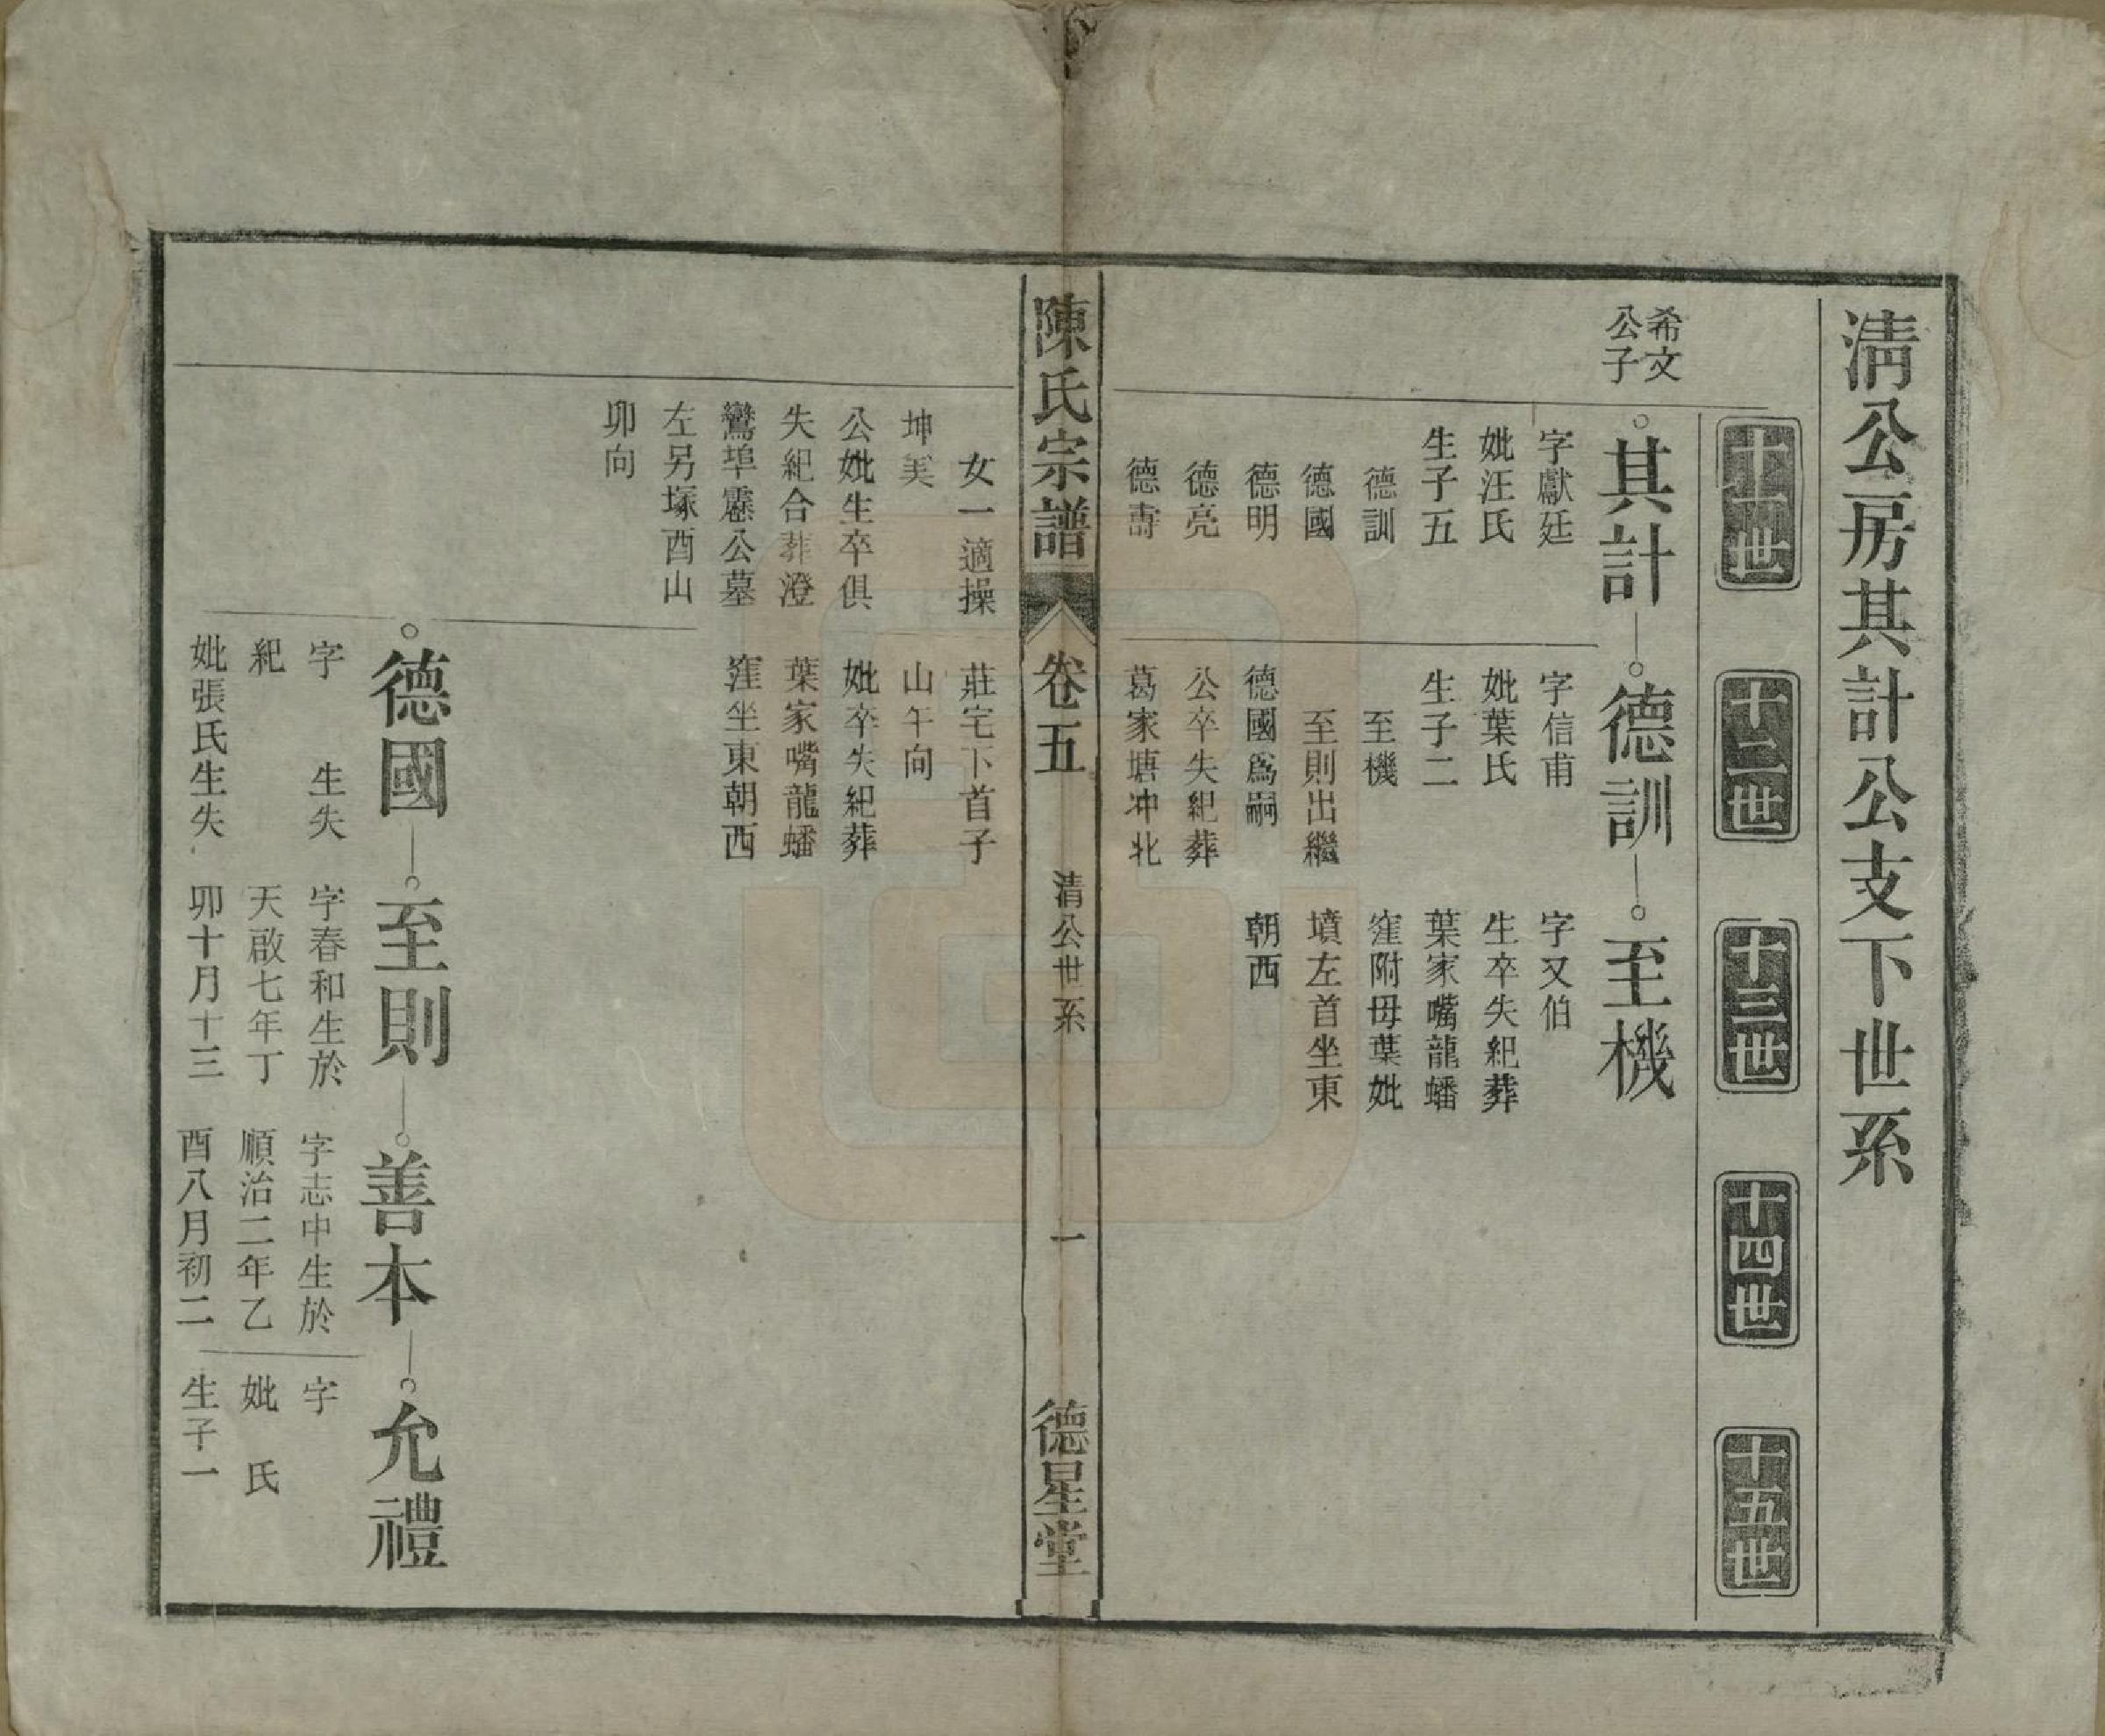 清公房其計公支下世系
十一世
十二世
十三世
十四世
十五世
希文
公子
其計
德訓
至機
字獻廷
妣汪氏
生子五
德訓
德國
德明
德亮
德壽
字信甫
妣葉氏
生子二
至機
至則出繼
德國為嗣
公卒失紀葬
葛家塘冲北
字又伯
生卒失紀葬
葉家嘴龍蟠
窪附母葉妣
墳左首坐東
朝西
陳氏宗譜
卷五
清公世系
一
德星堂
女一適操
坤美
公妣生卒俱
失紀合葬澄
鸞埠靈公墓
左另塚酉山
卯向
莊宅下首子
山午向
妣卒失紀葬
葉家嘴龍蟠
窪坐東朝西
德國
至則
善本
允禮
字 生失
紀
妣張氏生失
字春和生於
天啟七年丁
卯十月十三
字志中生於
順治二年乙
酉八月初二
字
妣 氏
生子一